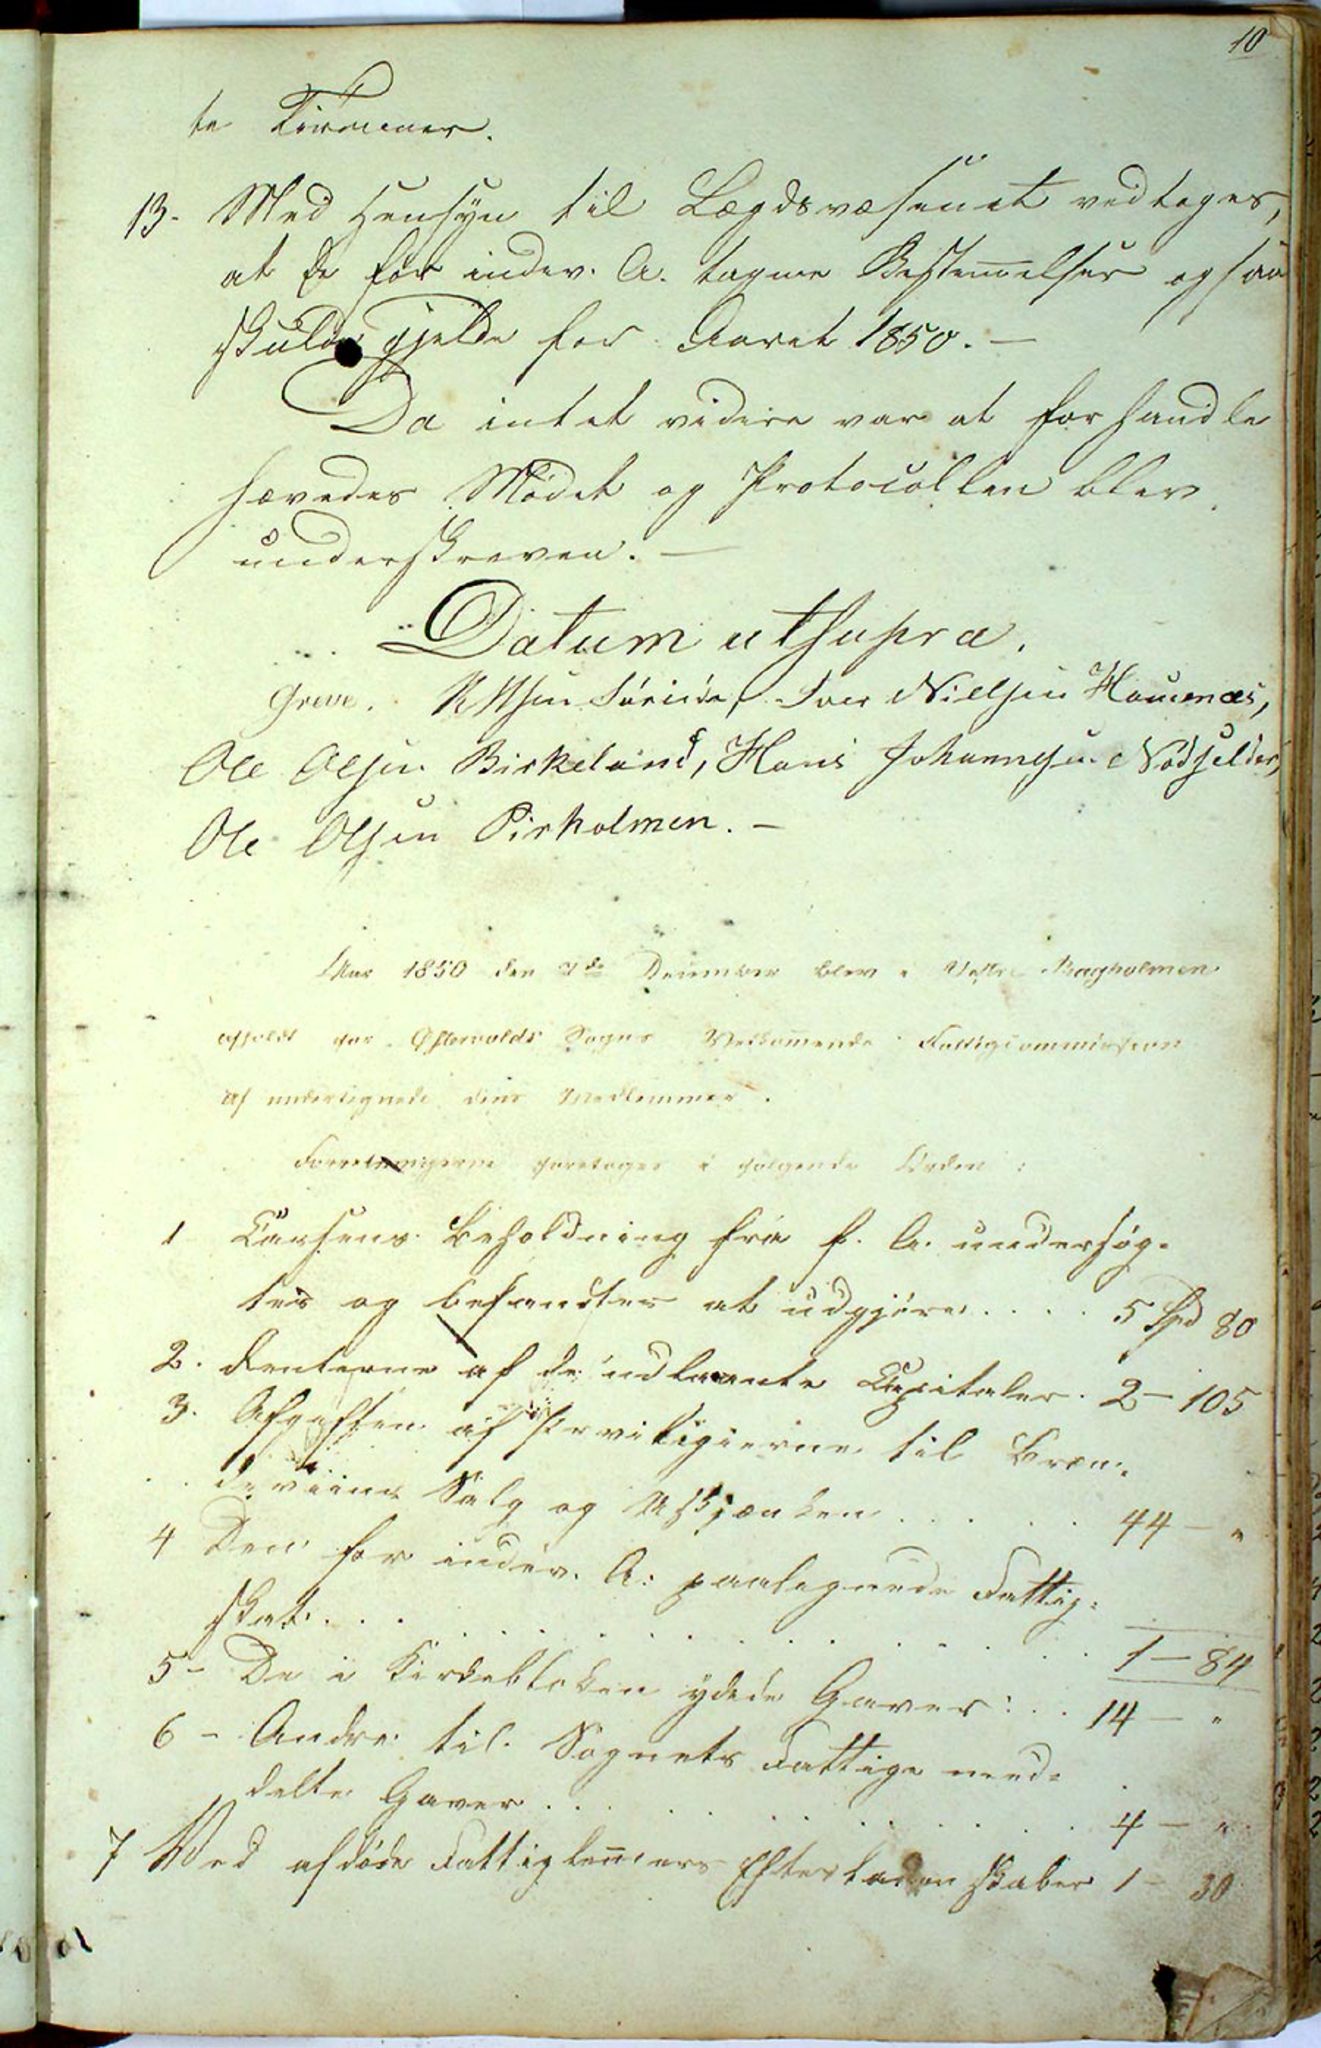 10
te Tømmer.
13. Med Hensyn til Lægdsvæsenet vedtoges,
at de for indev. A. tagne Bestemmelser ogsaa
skulde gjelde for Aaret 1850. —
Da intet videre var at forhandle
hævedes Mødet og Protocollen blev
underskreven. —
Datum utsupra.
Greve. Iver Nielsen Hannæs,
Ole Olsen Birkeland, Hans Johannesen
Ole Olsen Pirholmen. —
Aar 1850 den 7de December blev i Vestre Bagholmen
afholdt for Østervolds Sogns Vedkommende Fattigcommission
af undertegnede dens Medlemmer.
Forretningerne foretoges i følgende Orden:
1 Cassens Beholdning fra f. A. undersøg-
tes og befandtes at udgjøre .... 5 Spd 80
2. Renterne af de udlaante Capitaler. 2 — 105
3. Afgiften af Priviligierne til Bræn-
deviins Salg og Udskjænken ..... 44 — "
4 Den for indev. A: paalignede Fattig-
skat ............... 1 — 84
5 - De i Kirkeblokken ydede Gaver: .. 14 — "
6 - Andre til Sognets Fattige med-
delte Gaver ........... 4 — "
7 Ved afdøde Fattiglemmers Efterladenskaber 1 — 30